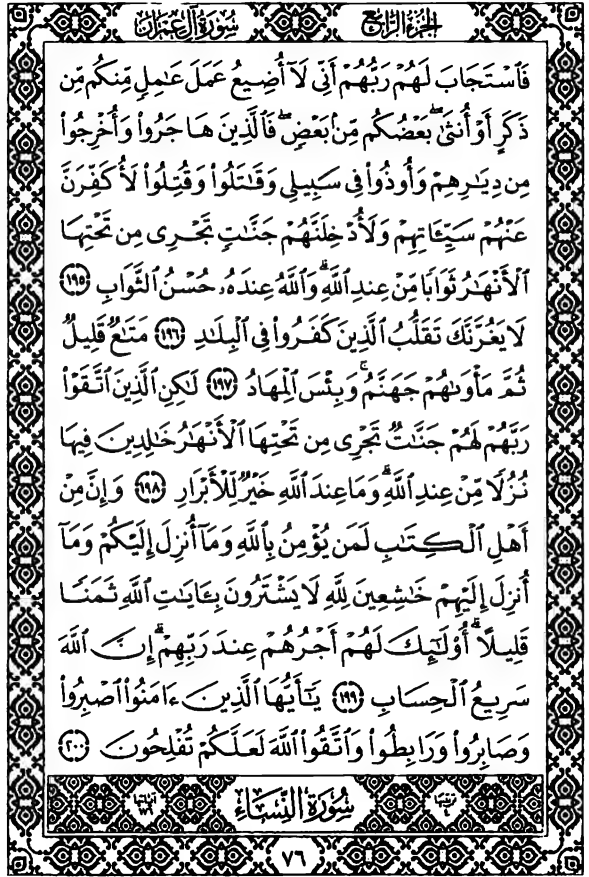 سُورَةُ آلِ عِمْرَانَ الجُزْءُ الرَّابِعُ
فَٱسْتَجَابَ لَهُمْ رَبُّهُمْ أَنِّى لَآ أُضِيعُ عَمَلَ عَٰمِلٍ مِّنكُم مِّن
ذَكَرٍ أَوْ أُنثَىٰۖ بَعْضُكُم مِّنۢ بَعْضٍۖ فَٱلَّذِينَ هَاجَرُوا۟ وَأُخْرِجُوا۟
مِن دِيَٰرِهِمْ وَأُوذُوا۟ فِى سَبِيلِى وَقَٰتَلُوا۟ وَقُتِلُوا۟ لَأُكَفِّرَنَّ
عَنْهُمْ سَيِّـَٔاتِهِمْ وَلَأُدْخِلَنَّهُمْ جَنَّٰتٍ تَجْرِى مِن تَحْتِهَا
ٱلْأَنْهَٰرُ ثَوَابًا مِّنْ عِندِ ٱللَّهِۗ وَٱللَّهُ عِندَهُۥ حُسْنُ ٱلثَّوَابِ ١٩٥
لَا يَغُرَّنَّكَ تَقَلُّبُ ٱلَّذِينَ كَفَرُوا۟ فِى ٱلْبِلَٰدِ ١٩٦ مَتَٰعٌ قَلِيلٌ
ثُمَّ مَأْوَىٰهُمْ جَهَنَّمُۚ وَبِئْسَ ٱلْمِهَادُ ١٩٧ لَٰكِنِ ٱلَّذِينَ ٱتَّقَوْا۟
رَبَّهُمْ لَهُمْ جَنَّٰتٌ تَجْرِى مِن تَحْتِهَا ٱلْأَنْهَٰرُ خَٰلِدِينَ فِيهَا
نُزُلًا مِّنْ عِندِ ٱللَّهِۗ وَمَا عِندَ ٱللَّهِ خَيْرٌ لِّلْأَبْرَارِ ١٩٨ وَإِنَّ مِنْ
أَهْلِ ٱلْكِتَٰبِ لَمَن يُؤْمِنُ بِٱللَّهِ وَمَآ أُنزِلَ إِلَيْكُمْ وَمَآ
أُنزِلَ إِلَيْهِمْ خَٰشِعِينَ لِلَّهِ لَا يَشْتَرُونَ بِـَٔايَٰتِ ٱللَّهِ ثَمَنًا
قَلِيلًاۗ أُو۟لَٰٓئِكَ لَهُمْ أَجْرُهُمْ عِندَ رَبِّهِمْۗ إِنَّ ٱللَّهَ
سَرِيعُ ٱلْحِسَابِ ١٩٩ يَٰٓأَيُّهَا ٱلَّذِينَ ءَامَنُوا۟ ٱصْبِرُوا۟
وَصَابِرُوا۟ وَرَابِطُوا۟ وَٱتَّقُوا۟ ٱللَّهَ لَعَلَّكُمْ تُفْلِحُونَ ٢٠٠
سُورَةُ النِّسَاءِ
٧٦